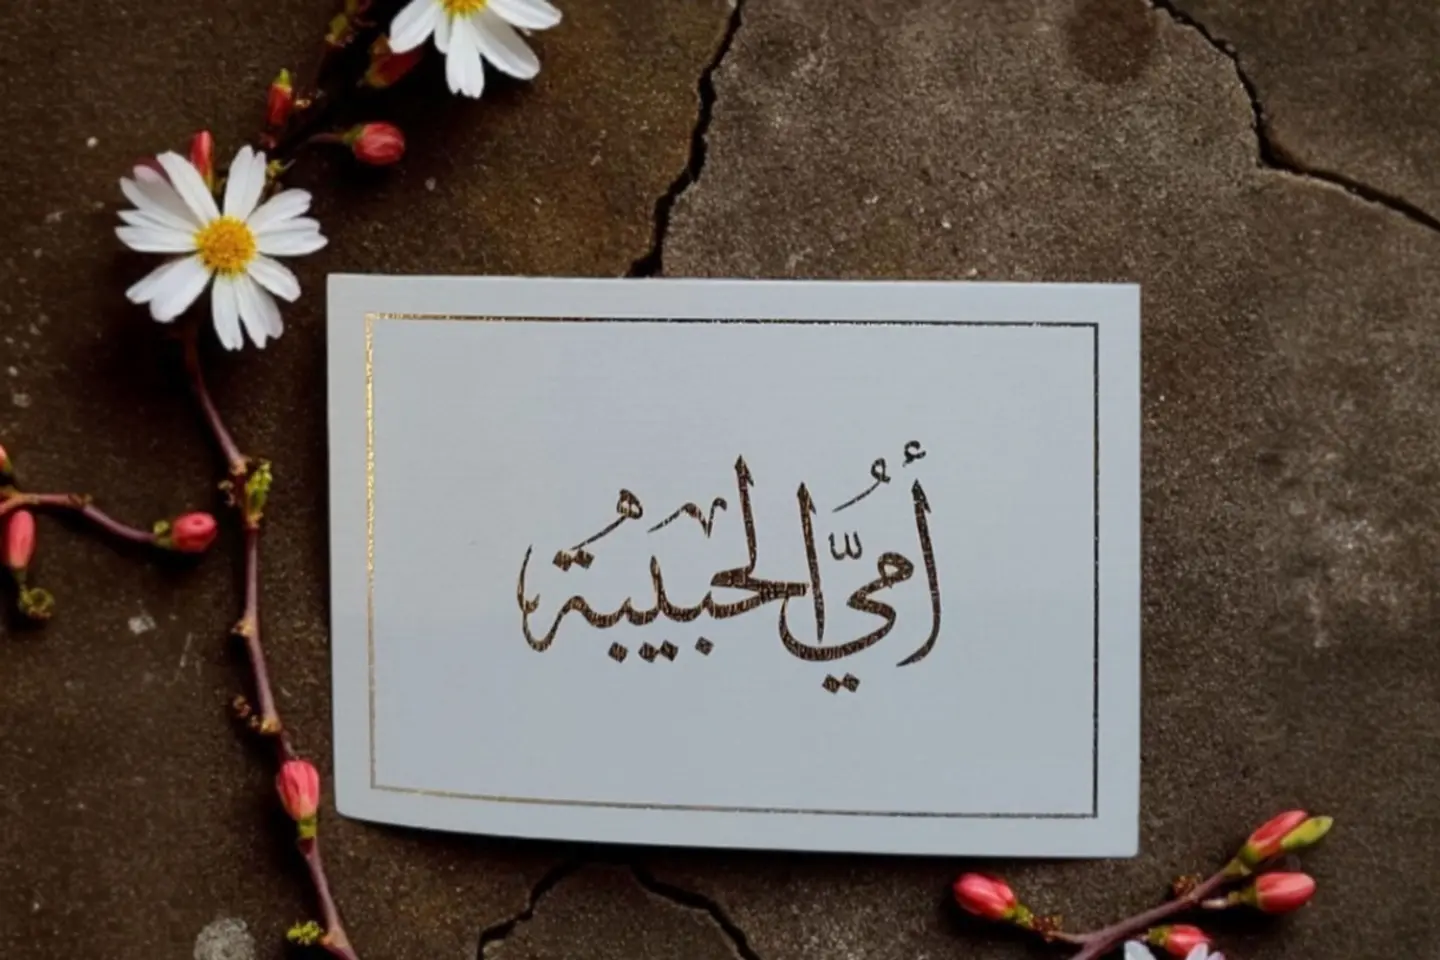 أُمّي الحبيبة